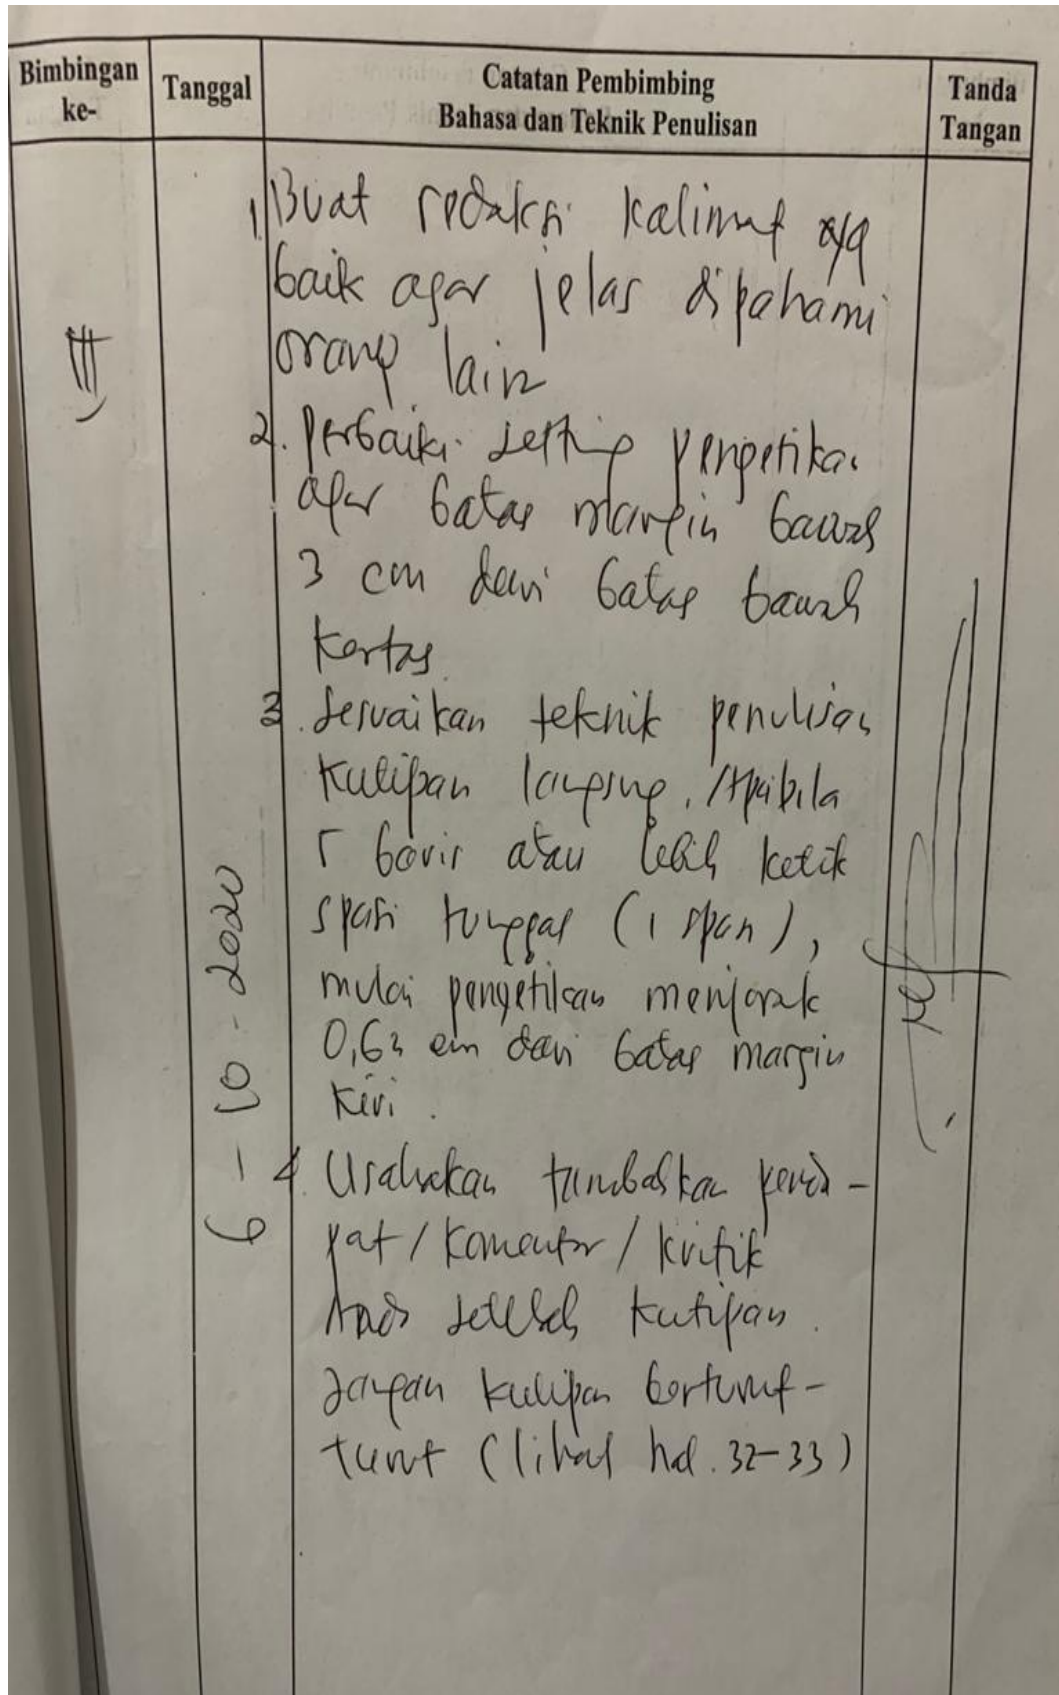 Bimbingan ke-
Tanggal
Catatan Pembimbing
Bahasa dan Teknik Penulisan
Tanda Tangan
III
6 - 10 - 2020
1. Buat redaksi kalimat yg
baik agar jelas dipahami
orang lain
2. Perbaiki setting pengetikan
agar batas margin bawah
3 cm dari batas bawah
kertas.
3. Sesuaikan teknik penulisan
kutipan langsung. Apabila
5 baris atau lebih ketik
spasi tunggal (1 spasi),
mulai pengetikan menjorok
0,63 cm dari batas margin
kiri.
4. Usahakan tambahkan penda-
pat / komentar / kritik
Anda setelah kutipan.
Jangan kutipan berturut-
turut (lihat hal. 32-33)